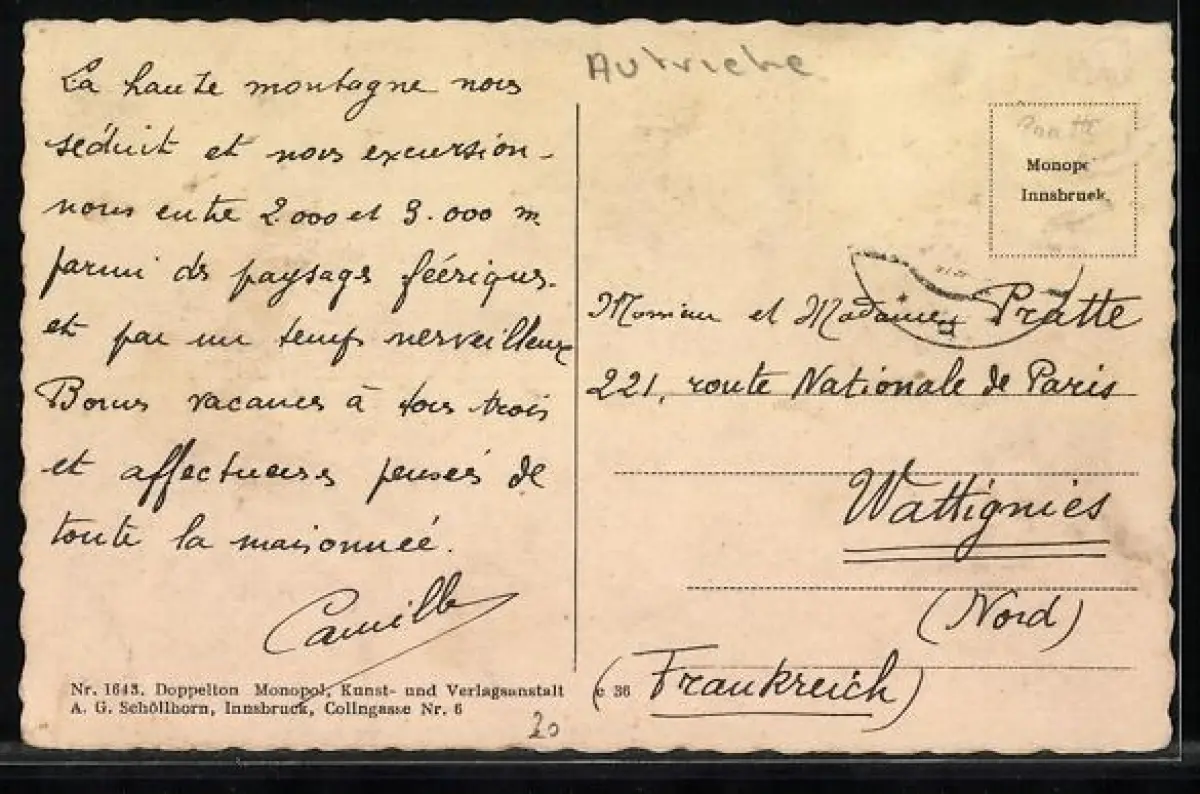 La haute montagne nous
séduit et nous excursion-
nons entre 2000 et 3.000 m
parmi des paysages féériques.
et par un temps merveilleux
Bonnes vacances à tous trois
et affectueuses pensées de
toute la maisonnée.
Camille
Nr. 1643. Doppelton Monopol, Kunst- und Verlagsanstalt
A. G. Schöllhorn, Innsbruck, Collngasse Nr. 6
20
Autriche
Pratte
Monopol
Innsbruck.
Monsieur et Madame Pratte
221, route Nationale de Paris
Wattignies
(Nord)
c 36
(Frankreich)